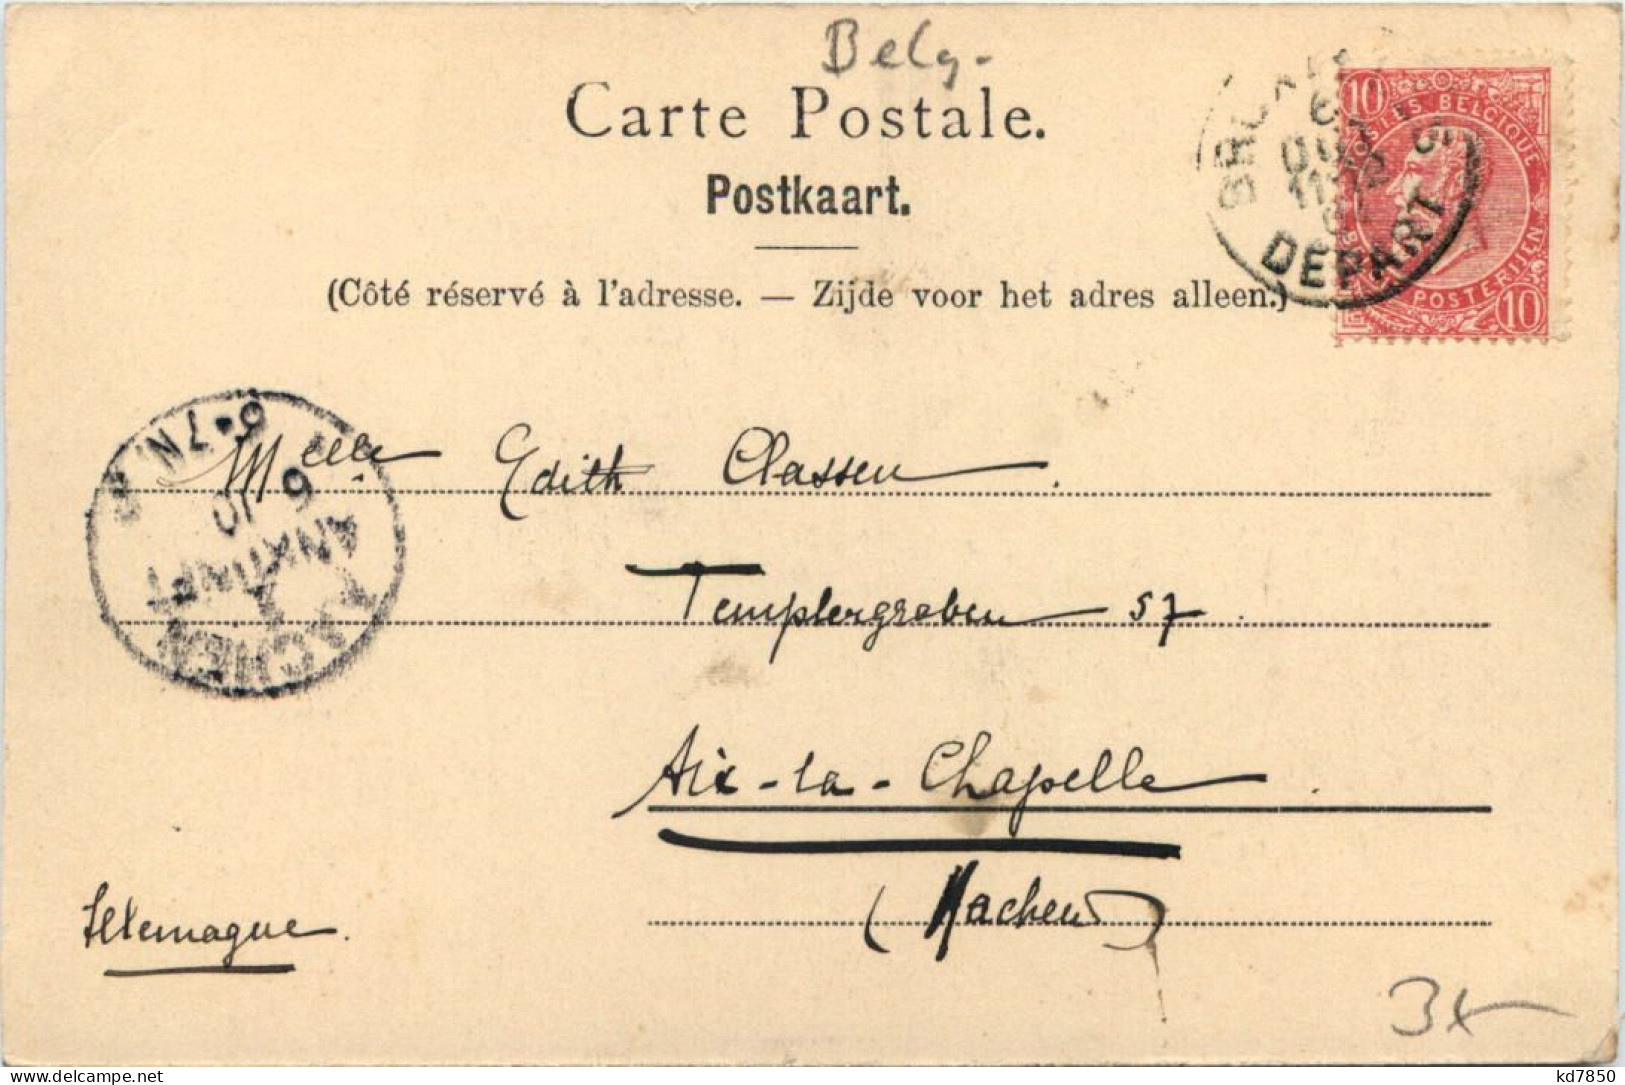 Belg.
Carte Postale.
Postkaart.
(Côté réservé à l'adresse. — Zijde voor het adres alleen.)
10
POSTES BELGIQUE
POSTERIJEN
10
6
DEPART
6·7N.
6
ANKUNFT
AACHEN
Melle Edith Classen.
Templergraben 57.
Aix-la-Chapelle.
(Aachen)
Allemagne.
3x
kd7850